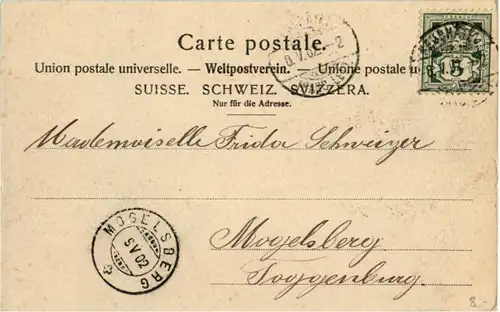 Carte postale.
Union postale universelle. — Weltpostverein. — Unione postale u
SUISSE. SCHWEIZ. SVIZZERA.
Nur für die Adresse.
9.V.02.-2
FRANCO
5
Mademoiselle Frida Schweizer
MOGELSBERG
9 V 02
Mogelsberg
Toggenburg.
8.-